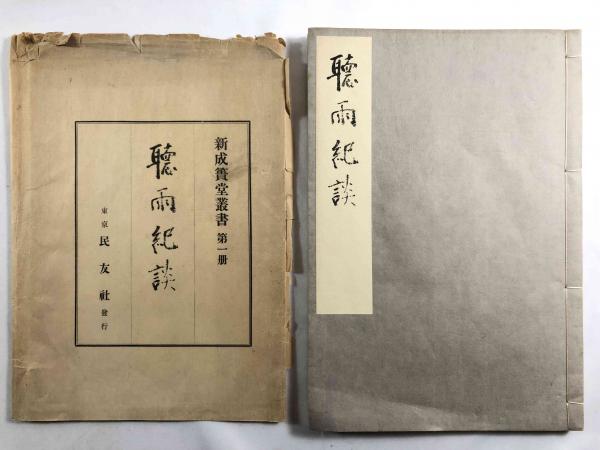 新成簣堂叢書 第一册
聽雨紀談
東京 民友社 發行
聽雨紀談